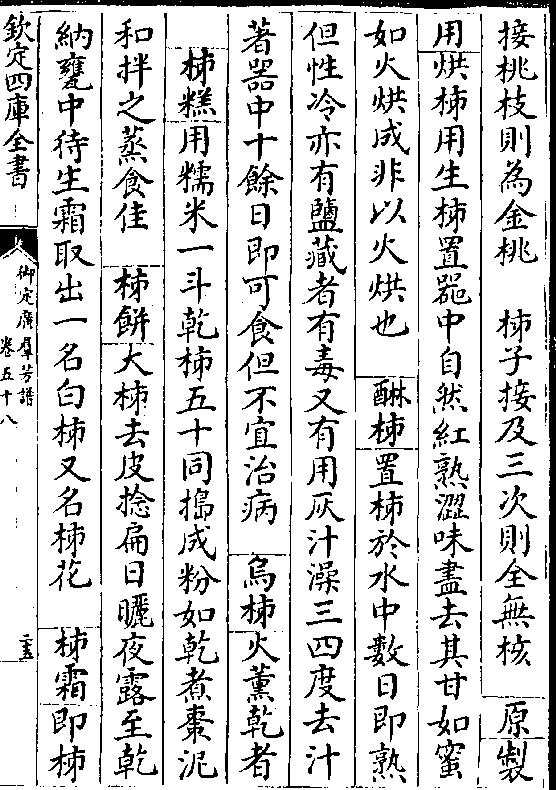 接桃枝則為金桃　柹子接及三次則全無核　原製
用烘柹用生柹置器中自然紅熟澀味盡去其甘如蜜
如火烘成非以火烘也　醂柹置柹於水中數日即熟
但性冷亦有鹽藏者有毒又有用灰汁澡三四度去汁
著器中十餘日即可食但不宜治病　烏柹火薰乾者
柹糕用糯米一斗乾柹五十同搗成粉如乾煮棗泥
和拌之蒸食佳　柹餅大柹去皮捻扁日曬夜露至乾
納甕中待生霜取出一名白柹又名柹花　柹霜即柹
欽定四庫全書
御定廣羣芳譜
卷五十八
二十五